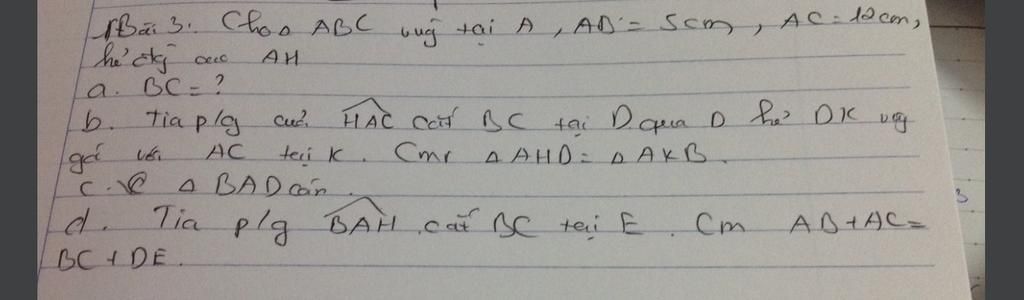 Bài 3: Cho △ ABC vug tại A, AB = 5cm, AC = 12cm,
kẻ đg cao AH
a. BC = ?
b. Tia p/g của HAC cắt BC tại D. qua D kẻ DK vug
góc với AC tại K. Cmr △ AHD = △ AKB.
c. △ BAD cân.
d. Tia p/g BAH cắt BC tại E. Cm AB + AC =
BC + DE.